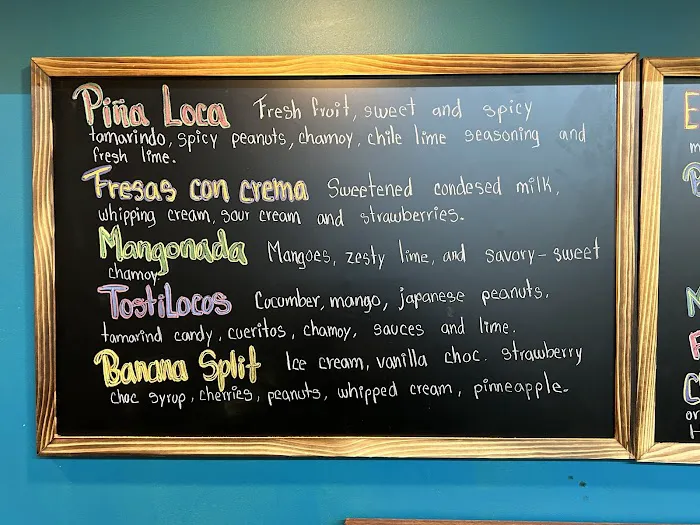 Piña Loca Fresh fruit, sweet and spicy
tamarindo, spicy peanuts, chamoy, chile lime seasoning and
fresh lime.
Fresas con crema Sweetened condesed milk,
whipping cream, sour cream and strawberries.
Mangonada Mangoes, zesty lime, and savory-sweet
chamoy
TostiLocos Cucumber, mango, japanese peanuts,
tamarind candy, cueritos, chamoy, sauces and lime.
Banana Split Ice cream, vanilla choc. strawberry
choc syrup, cherries, peanuts, whipped cream, pinneapple.